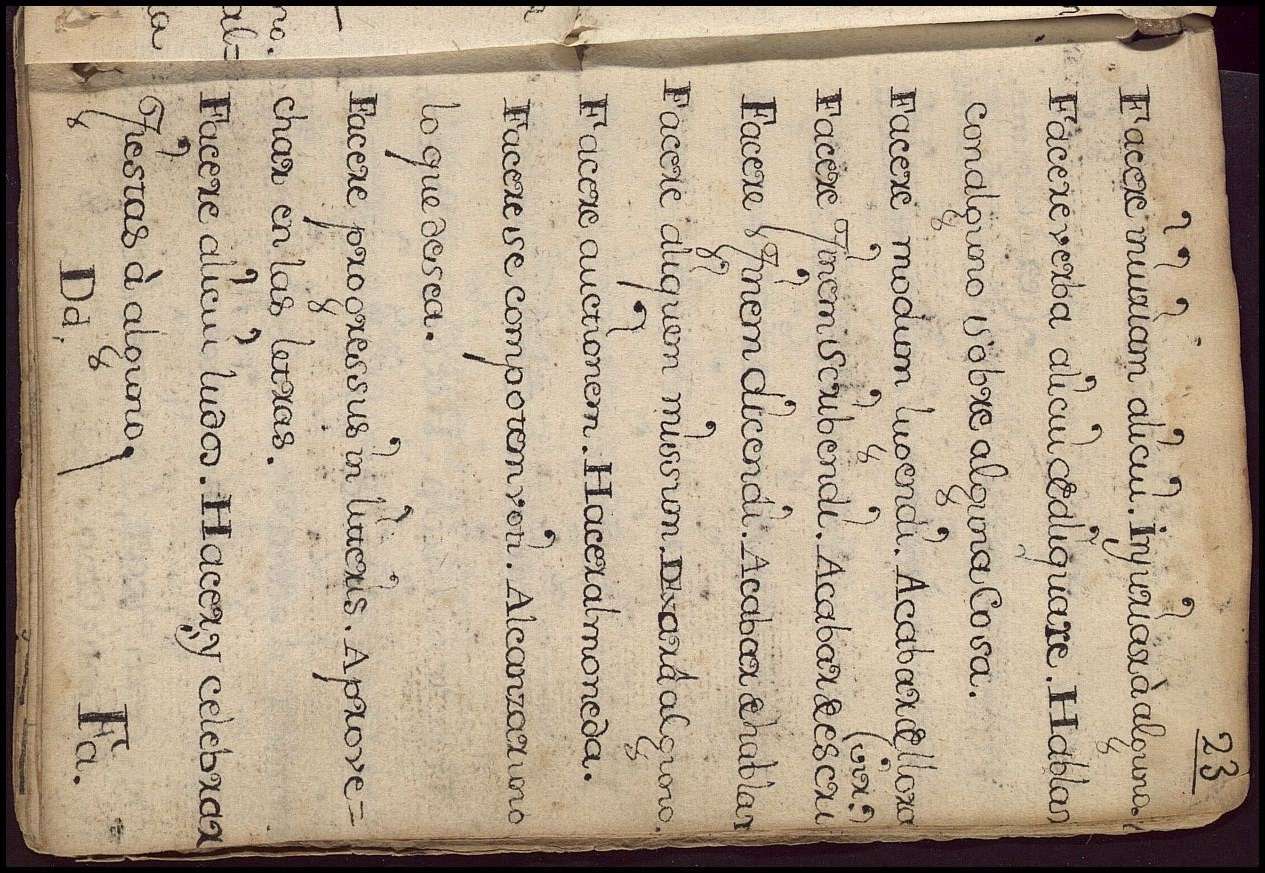 23
Facere iniuriam alicui. Injuriar à alguno.
Facere verba alicui de aliqua re. Hablar
con alguno sobre alguna Cosa.
Facere modum lugendi. Acabar de llora
Facere Finem scribendi. Acabar de escri
(vir.
Facere Finem dicendi. Acabar de hablar
Facere aliquem missum. Dexar à alguno.
Facere auctionem. Hacer almoneda.
Facere se compotem voti. Alcanzar uno
lo que desea.
Facere progressus in literis. Aprove=
char en las letras.
Facere alicui ludos. Hacer, y celebrar
Fiestas à alguno,
Dd. Fa.